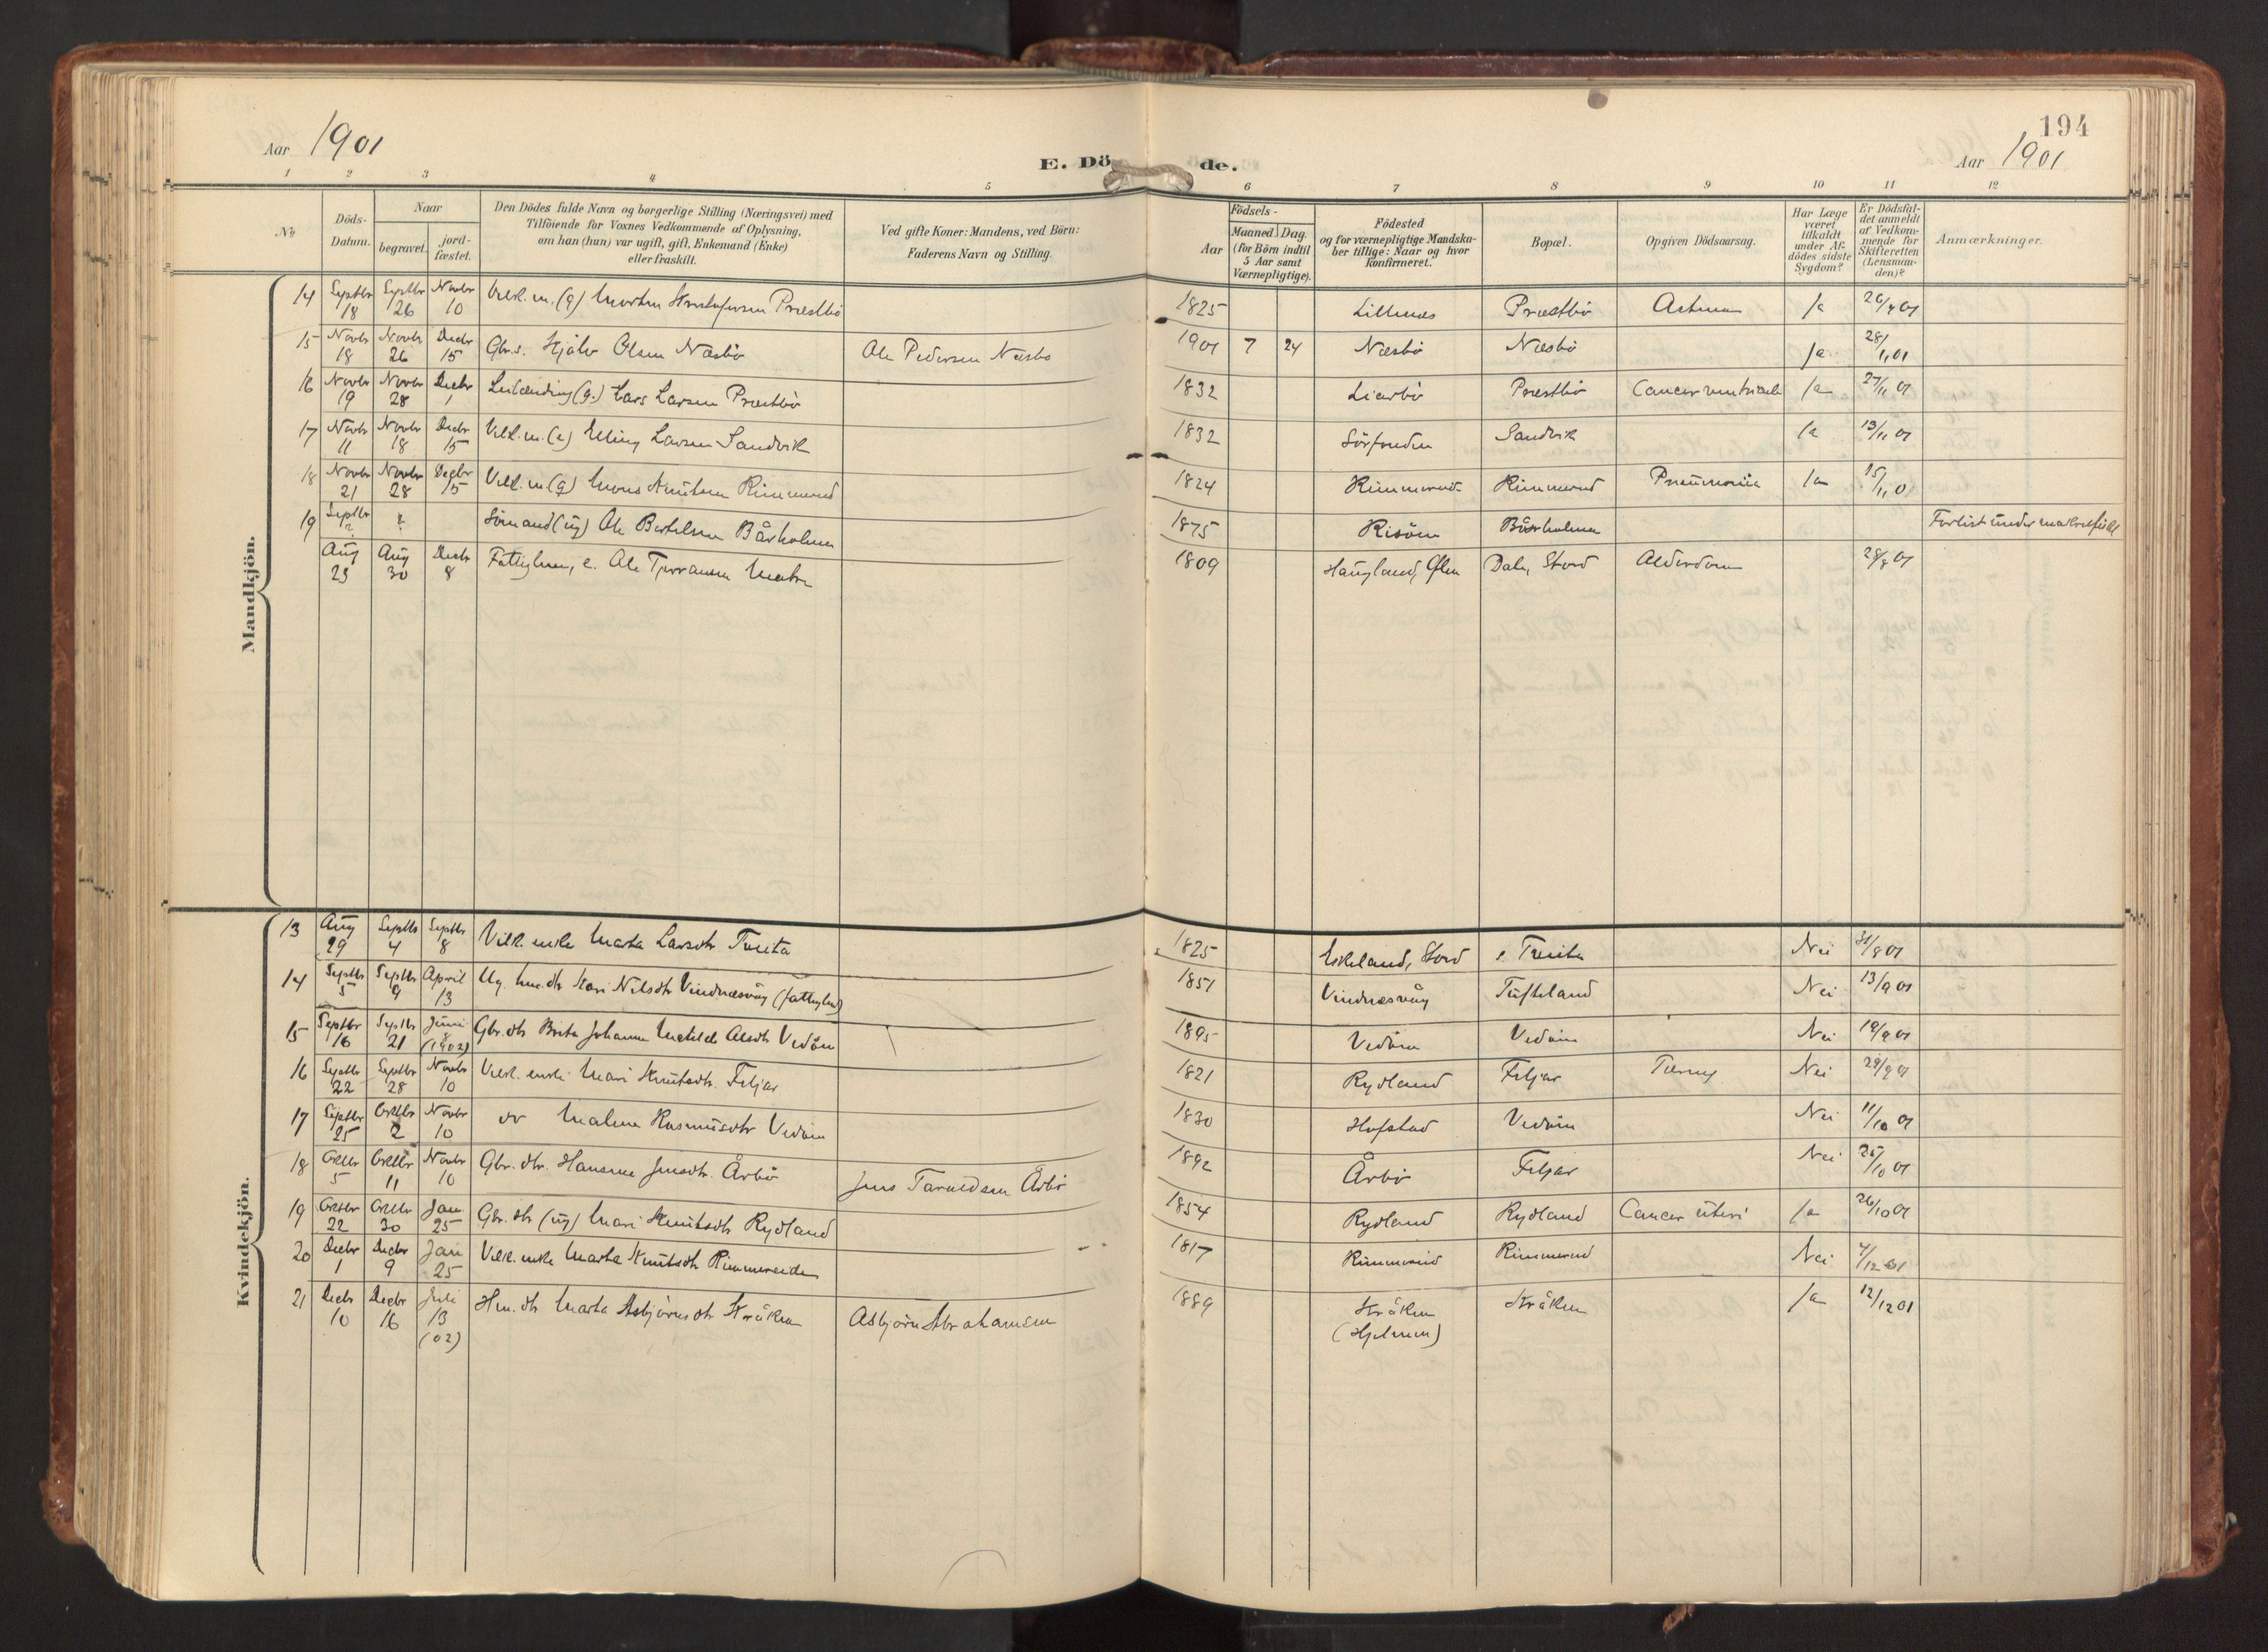 194
Aar 1901
E. Dö de.
Aar 1901
1 2 3 4 5 6 7 8 9 10 11 12
No
Döds-Datum.
Naar
begravet.
jord-fæstet.
Den Dödes fulde Navn og borgerlige Stilling (Næringsvei) med
Tilföiende for Voxnes Vedkommende af Oplysning,
om han (hun) var ugift, gift, Enkemand (Enke)
eller fraskilt.
Ved gifte Koner: Mandens, ved Börn:
Faderens Navn og Stilling.
Födsels-
Aar
Maaned. Dag.
(for Börn indtil
5 Aar samt
Værnepligtige).
Födested
og for værnepligtige Mandska-
ber tillige: Naar og hvor
konfirmeret.
Bopæl.
Opgiven Dödsaarsag.
Har Læge
været
tilkaldt
under Af-
dödes sidste
Sygdom?
Er Dödsfal-
det anmeldt
af Vedkom-
mende for
Skifteretten
(Lensman-
den)?
Anmærkninger.
Mandkjön.
14 Septbr 18 Septbr 26 Novbr 10 Vilk. m. (g) Morten Præstbö 1825 Lillenes Præstbö Astma Ja
15 Novbr 18 Novbr 26 Decbr 15 Gbr.s. Hjalv Olsen Næsbö Ole Pedersen Næsbö 1901 7 24 Næsbö Næsbö Ja 28/11 01
16 Novbr 19 Novbr 28 Decbr 1 (g.) Lars Larsen Præstbö 1832 Liarbö Præstbö Cancer ventriculi Ja 27/11 01
17 Novbr 11 Novbr 18 Decbr 15 Vilk. m. (e) Elling Larsen Sandvik 1832 Sandvik Ja 13/11 01
18 Novbr 21 Novbr 28 Decbr 15 Vilk. m. (g) Mons Knutsen Rimmereid 1824 Rimmereid Rimmereid Pneumonia Ja
19 Septbr ? ? Sömand (ug) Ole Bertelsen Bårholmen 1875 Risöen Bårholmen Forlist under makrelfiske
Aug 23 Aug 30 Decbr 8 Fattiglem, e. Ole Matre 1809 Haugland, Ølen Dale, Stord Alderdom 28/8 01
Kvindekjön.
13 Aug 29 Septbr 4 Septbr 8 Vilk. enke Marta Larsdtr Tveita 1825 Eskeland, Stord Tveita Nei 31/8 01
14 Septbr 5 Septbr 9 April 13 Ug. Hm. dtr Kari Nilsdtr Vindnæsvåg (fattiglem) 1851 Vindnæsvåg Tufteland Nei 13/9 01
15 Septbr 16 Septbr 21 Juni 8 (1902) Gbr. dtr Brita Johanne Matilde Olsdtr Vedöen 1895 Vedöen Vedöen Nei 19/9 01
16 Septbr 22 Septbr 28 Novbr 10 Vilk. enke Mari Knutsdtr. Teljar 1821 Rydland Tæring Nei
17 Septbr 25 Octbr 2 Novbr 10 do Malene Rasmusdtr Vedöen 1830 Hofstad Vedöen Nei 11/10 01
18 Octbr 5 Octbr 11 Novbr 10 Gbr. dtr. Hansine Jensdtr. Årbö Jens Taraldsen Årbö 1892 Årbö Nei 25/10 01
19 Octbr 22 Octbr 30 Jan 25 Gbr. dtr (ug) Mari Knutsdtr Rydland 1854 Rydland Rydland Cancer uteri Ja 26/10 01
20 Decbr 1 Decbr 9 Jan 25 Vilk. enke Marta Knutsdtr Rimmereide 1817 Rimmereid Rimmereid Nei 4/12 01
21 Decbr 10 Decbr 16 Juli 13 (02) Hm. dtr Marta Asbjörnsdtr Kråken Asbjörn Abrahamsen 1889 Kråken (Hjelmen) Kråken Ja 12/12 01